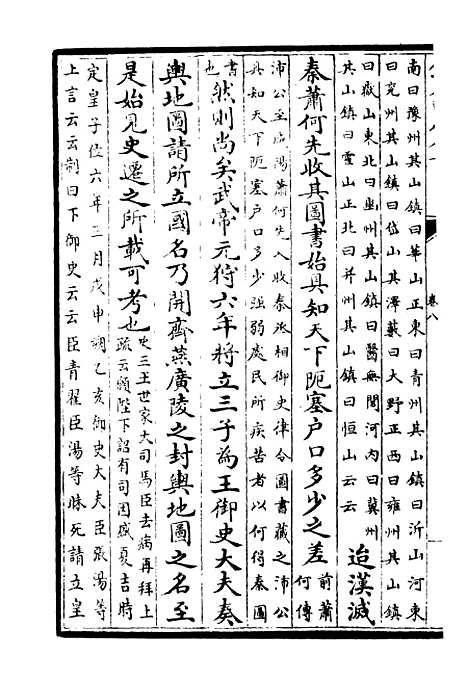 南曰豫州其山鎮曰華山正東曰青州其山鎮曰沂山河東
曰兗州其山鎮曰岱山其澤藪曰大野正西曰雍州其山鎮
曰嶽山東北曰幽州其山鎮曰醫無閭河內曰冀州
其山鎮曰霍山正北曰并州其山鎮曰恒山云云
迨漢滅
秦蕭何先收其圖書始具知天下阨塞户口多少之差
前蕭
何傳
沛公至咸陽蕭何先入收秦丞相御史律令圖書藏之沛公
具知天下阨塞户口多少强弱處民所疾苦者以何得秦圖
書
也
然則尚矣武帝元狩六年將立三子為王御史大夫奏
輿地圖請所立國名乃開齊燕廣陵之封輿地圖之名至
是始見史遷之所載可考也
史三王世家大司馬臣去病再拜上
疏云願陛下詔有司因盛夏吉時
定皇子位六年三月戊申朔乙亥御史大夫臣張湯等
上言云云制曰下御史云云臣青翟臣湯等昧死請立皇
卷八